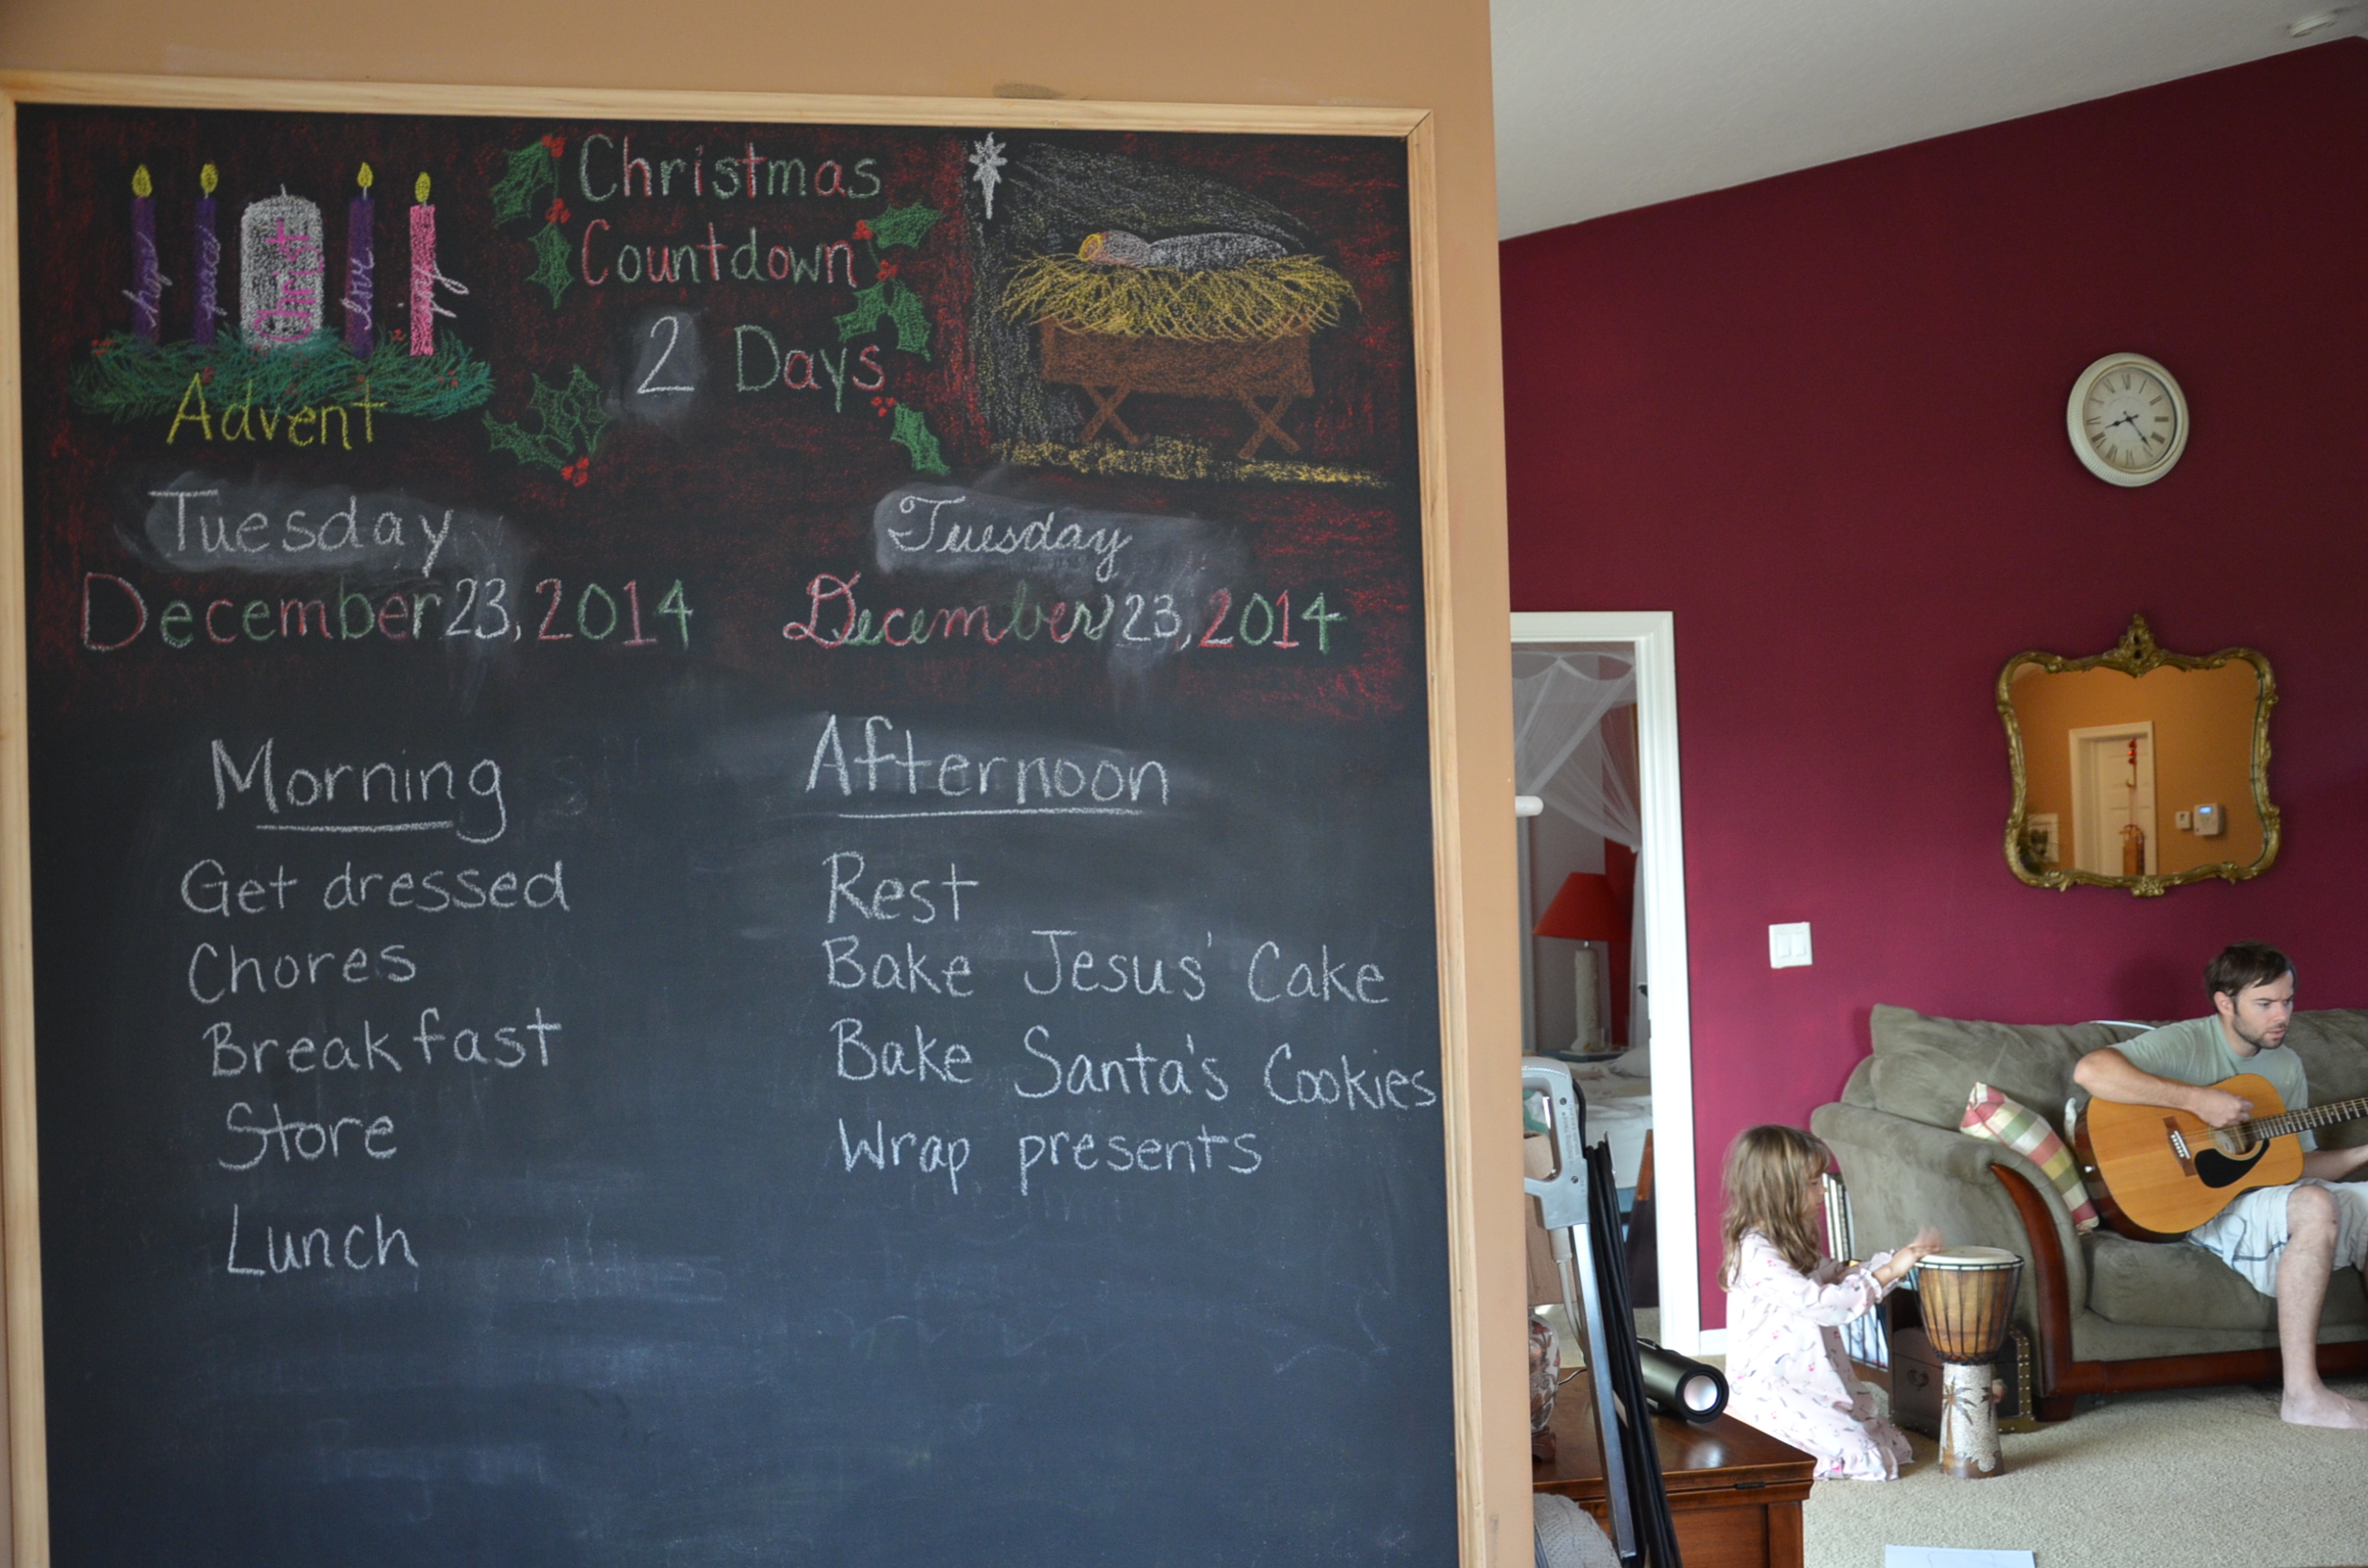 hope
peace
Christ
love
joy
Advent
Christmas
Countdown
2 Days
Tuesday
December 23, 2014
Tuesday
December 23, 2014
Morning
Get dressed
Chores
Breakfast
Store
Lunch
Afternoon
Rest
Bake Jesus' Cake
Bake Santa's Cookies
Wrap presents